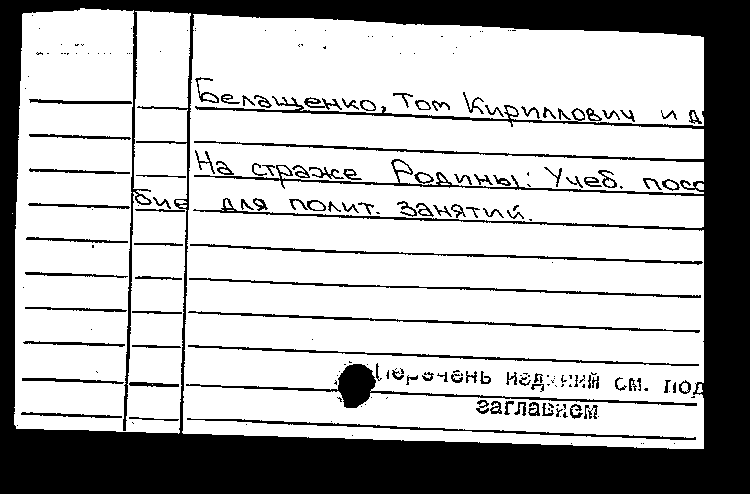 Белащенко, Том Кириллович и д
На страже Родины: Учеб. посо
бие для полит. занятий.
Перечень изданий см. под
заглавием